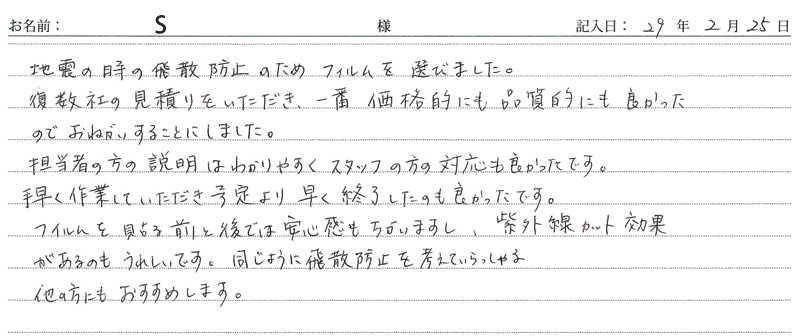 お名前： S 様 記入日： 29 年 2 月 25 日
地震の時の飛散防止のため フィルムを選びました。
複数社の見積りをいただき、一番 価格的にも品質的にも良かった
ので おねがいすることにしました。
担当者の方の説明はわかりやすく スタッフの方の対応も良かったです。
手早く作業していただき予定より早く終了したのも良かったです。
フィルムを貼る前と後では安心感もちがいますし、紫外線カット効果
があるのもうれしいです。同じように飛散防止を考えていらっしゃる
他の方にもおすすめします。